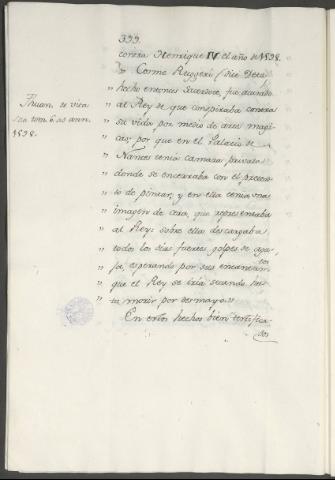 399.
contra Henrique IV el año de 1598.
Cosme Ruggeri (dice
" hecho entonces Sacerdote, fue acusado
" al Rey de que conspiraba contra
" su vida por medio de artes magi
" cas; por que en el Palacio de
" Nantes tenia camara privada
" donde se encerraba con el pretex-
" to de pintar, y en ella tenia una
" imagen de cera, que representaba
" al Rey: sobre ella descargaba
" todos los dias fuertes golpes de agu-
" ja, esperando por sus encantamtos
" que el Rey se iria secando has
" ta morir por desmayo."
En estos hechos bien testifica-
dos
Thuan. de vita
sua tom. 6. ad ann.
1598.